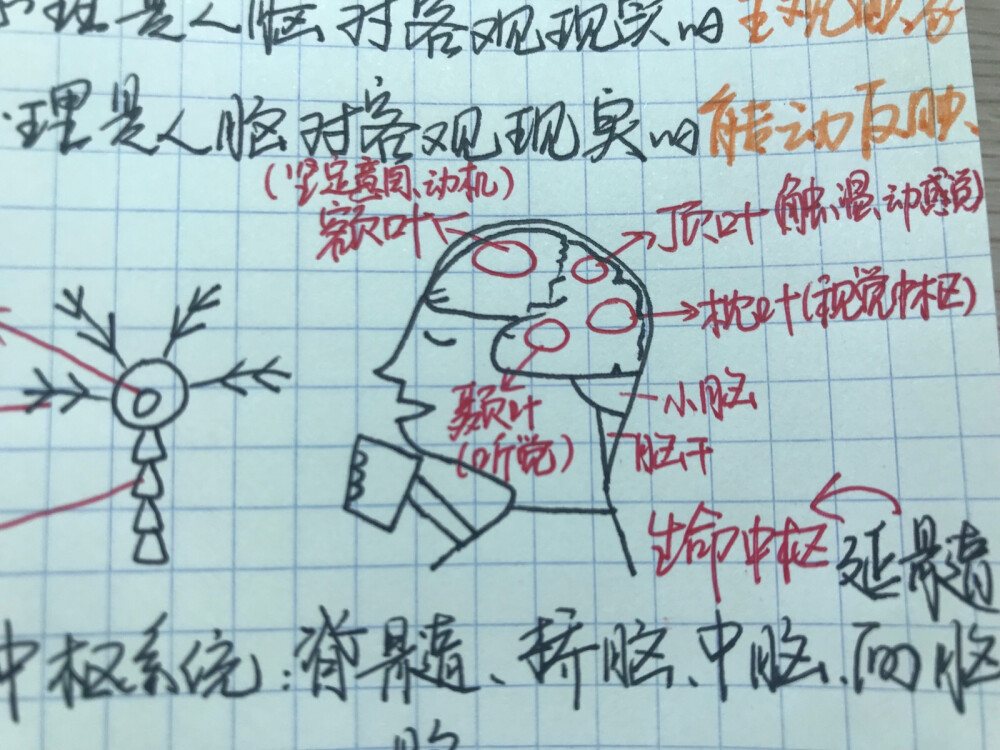 理是人脑对客观现实的主观映
理是人脑对客观现实的能动反映、
(坚定意图、动机)
额叶
顶叶(触、温、动感觉)
枕叶(视觉中枢)
颞叶
(听觉)
小脑
脑干
生命中枢
延髓
中枢系统:脊髓、桥脑、中脑、间脑
脑